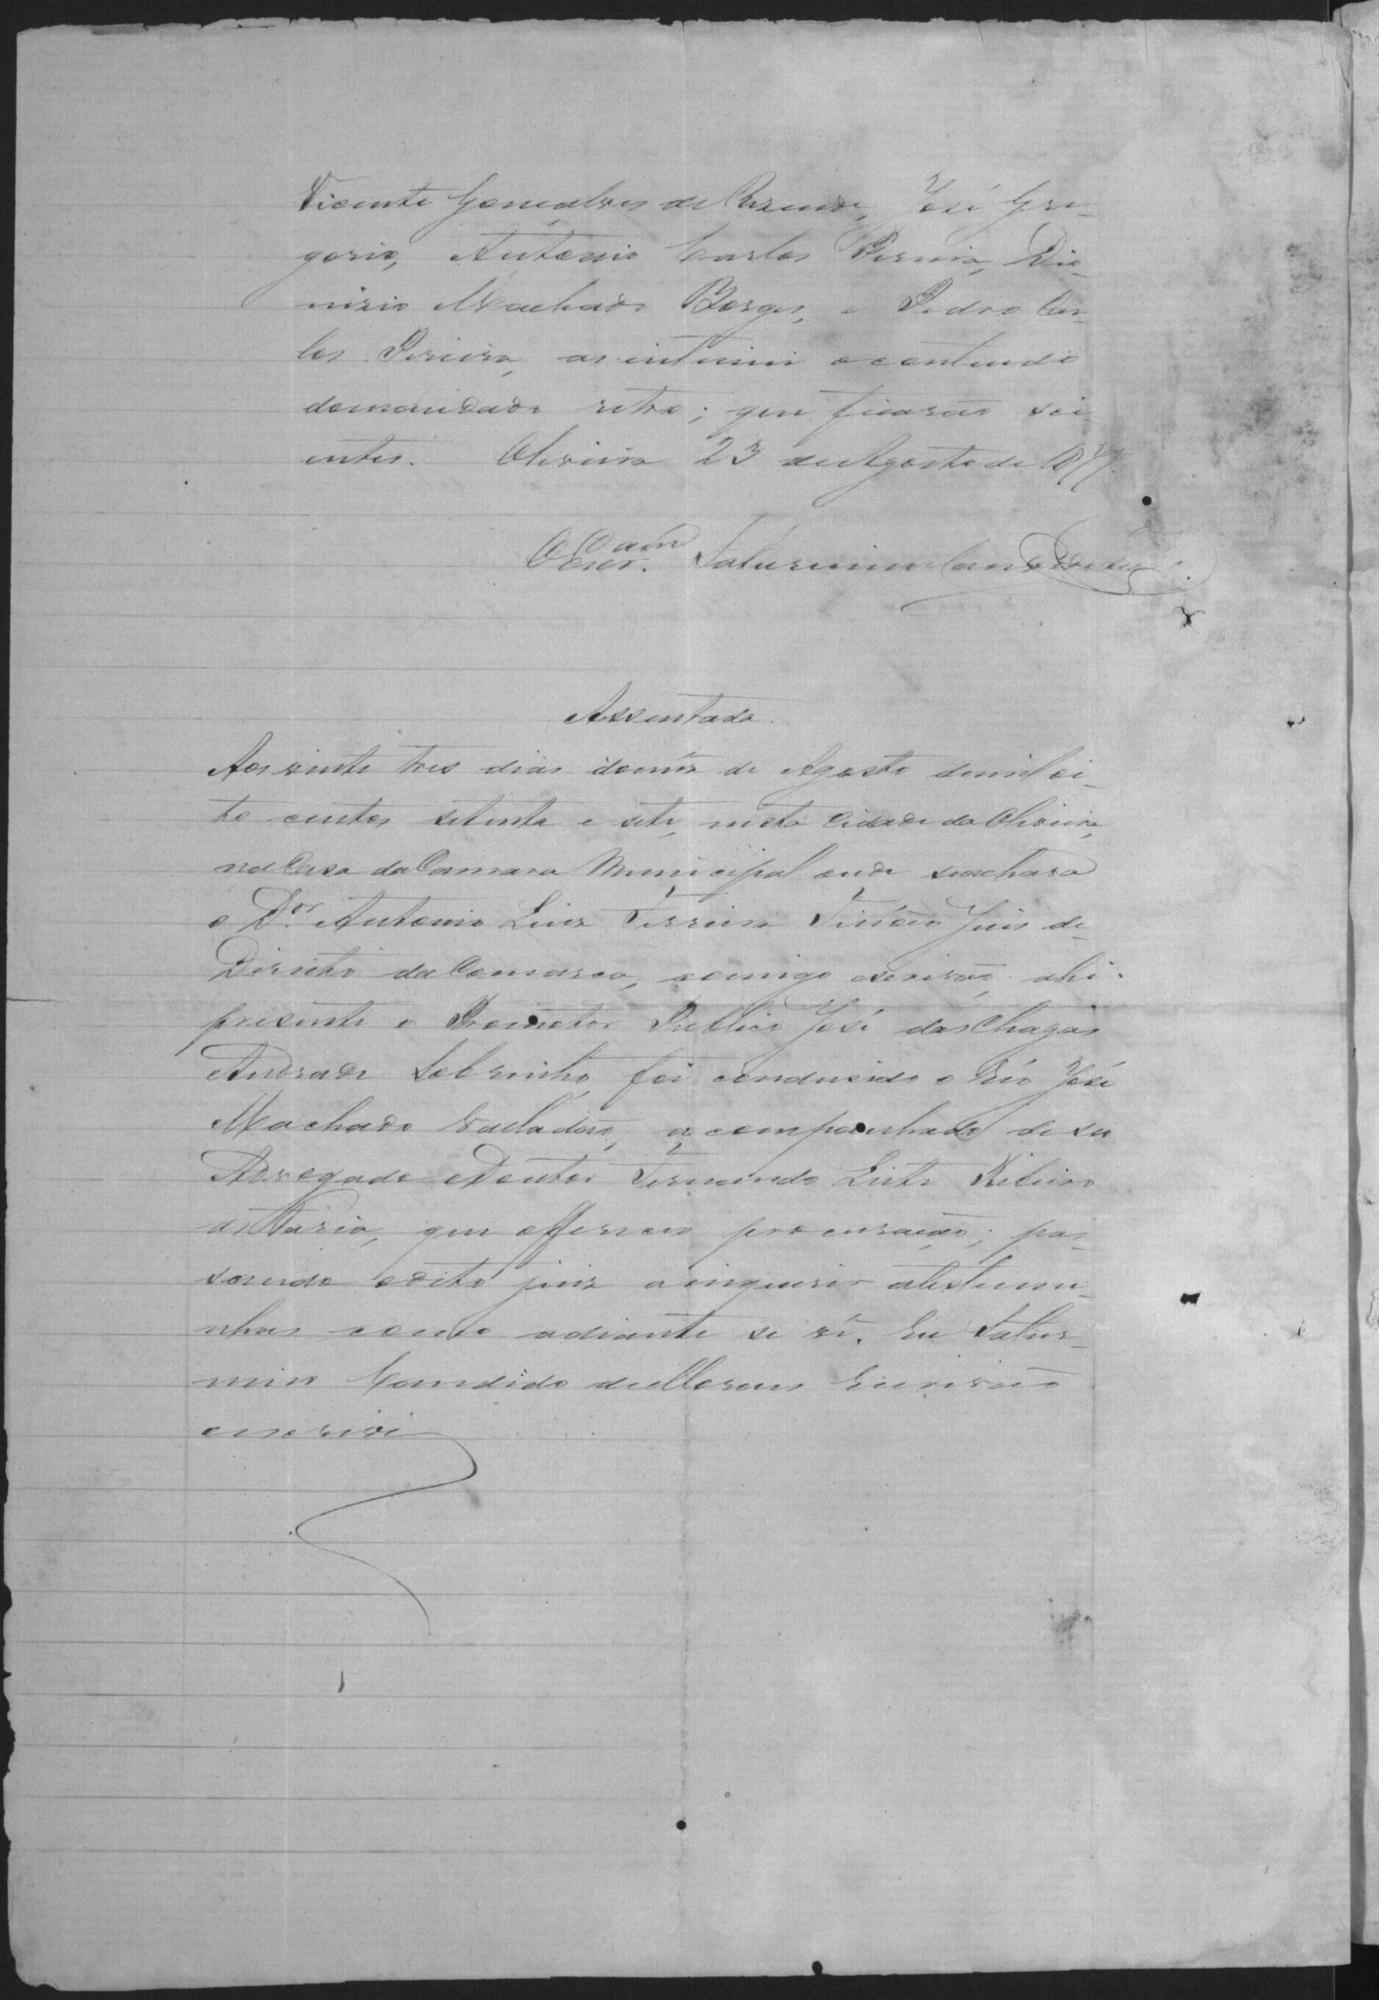 Vicente Gonçalves de Rezende, José Gre-
gorio, Antonio Carlos Pereira, Dio-
nizio Machado Borges, e Pedro Car-
los Pereira, as intimei o conteudo
do mandado retro; que ficarão sci-
entes. Oliveira 23 de Agosto de 1877.
Saturnino Candido de
Assentada.
Aos vinte tres dias do mez de Agosto de mil oi-
to centos setenta e sete, nesta Cidade da Oliveira,
na Casa da Camara Municipal onde se achava
o Dor. Antonio Luiz Ferreira Tinôco Juis de
Direito da Comarca, comigo escrivão, ahi
presente o Promotor Publico José das Chagas
Andrade Sobrinho, foi conduzido o Réo José
Machado Valladão, acompanhado de seu
Advogado Doutor Fernando Leite Ribeiro
de Faria, que offereceo procuração; pas-
sando o dito juiz a inquerir as testemu-
nhas como adiante se vê. Eu Satur-
nino Candido de Moraes Escrivão
escrevi